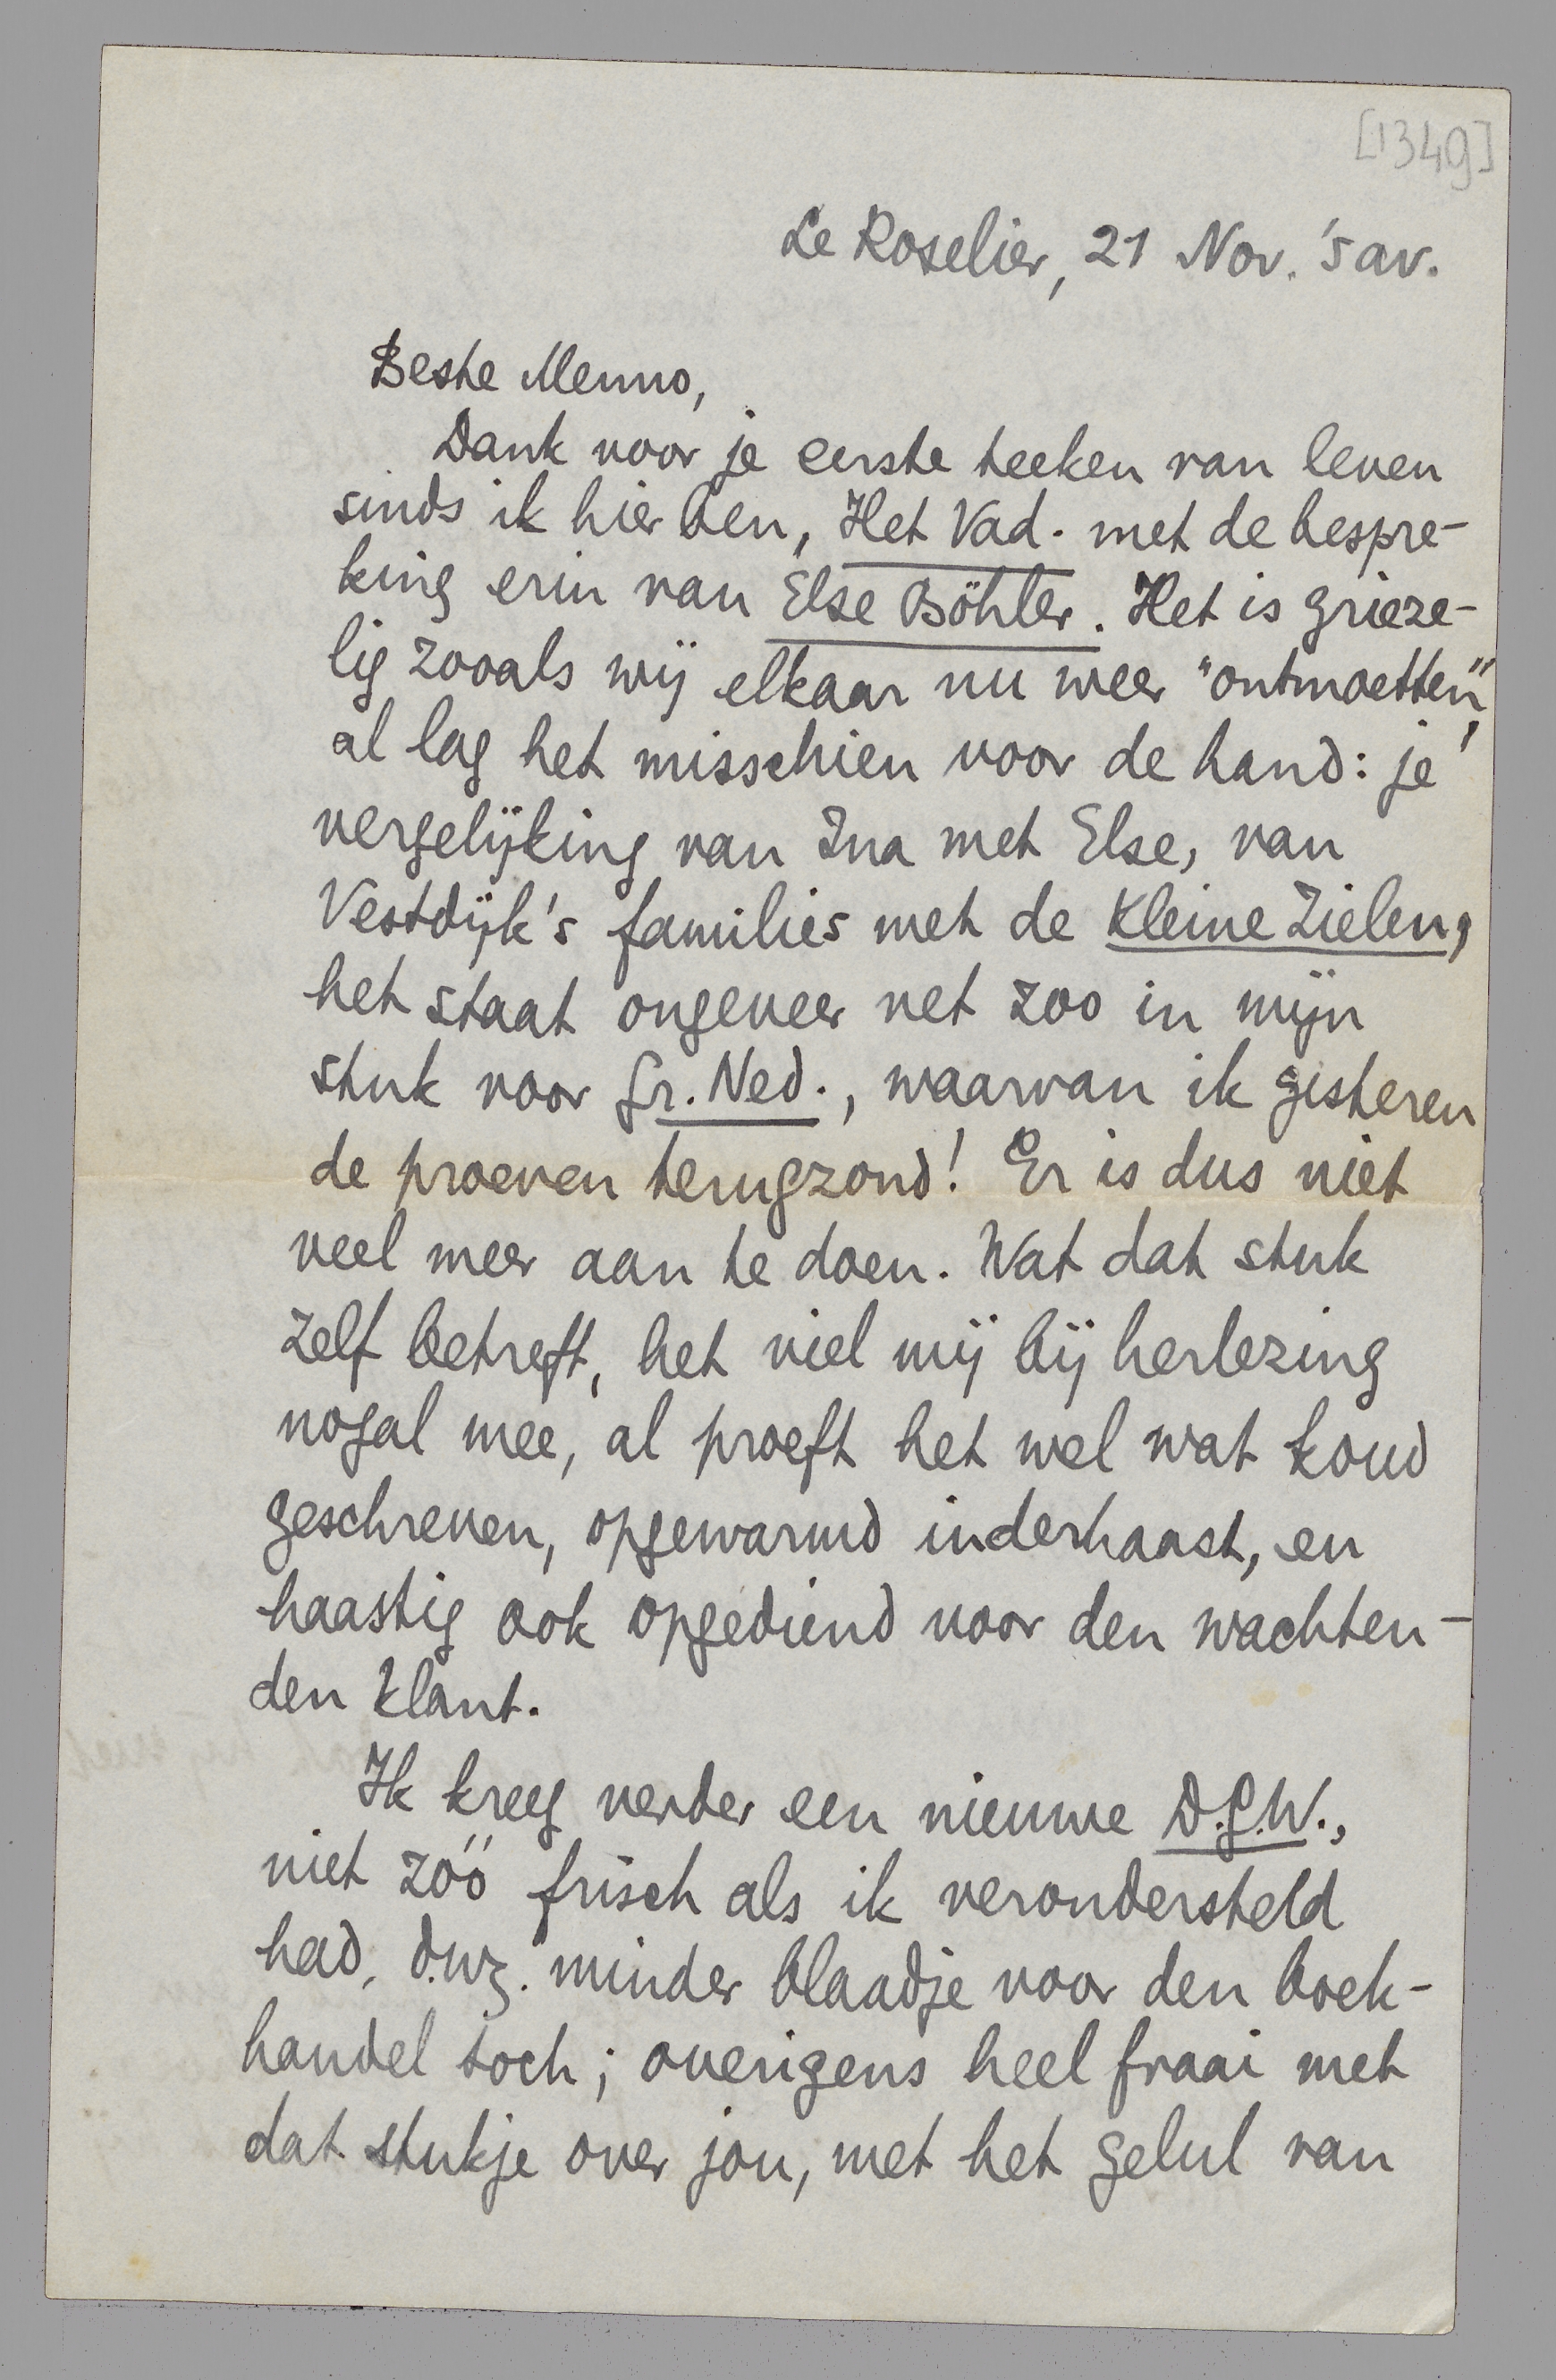 [1349]
Le Roselier, 21 Nov. 's av.
Beste Menno,
Dank voor je eerste teeken van leven
sinds ik hier ben, Het Vad. met de bespre-
king erin van Else Böhler. Het is grieze-
lig zooals wij elkaar nu weer "ontmoetten",
al lag het misschien voor de hand: je
vergelijking van Ina met Else, van
Vestdijk's families met de Kleine Zielen,
het staat ongeveer net zoo in mijn
stuk voor Gr. Ned., waarvan ik gisteren
de proeven terugzond! Er is dus niet
veel meer aan te doen. Wat dat stuk
zelf betreft, het viel mij bij herlezing
nogal mee, al proeft het wel wat koud
geschreven, opgewarmd inderhaast, en
haastig ook opgediend voor den wachten-
den klant.
Ik kreeg verder een nieuwe D.G.W.,
niet zóó frisch als ik verondersteld
had, d.w.z. minder blaadje voor den boek-
handel toch; overigens heel fraai met
dat stukje over jou, met het gelul van